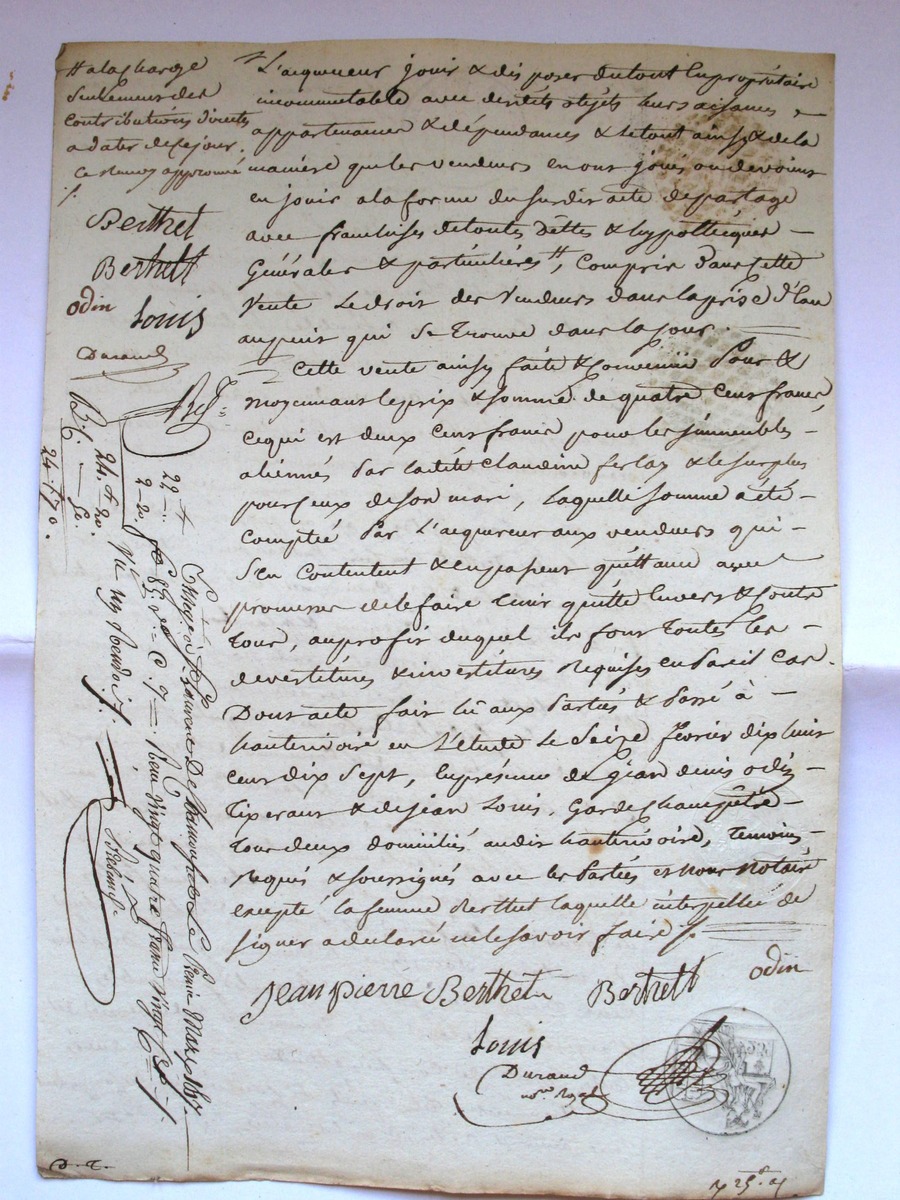 # a la charge
seulement des
contributions directes
a dater de ce jour.
ce renvoy approuvé
Berthet
Berthett
odin Louis
Durand
L'acquereur jouir & disposer du tout en propriétaire
incommutable avec desdits objets leurs aisances,
appartenances & dépendances & le tout ainsy & de la
maniere que les vendeurs en ont jouis ou devoient
en jouir a la forme du susdit acte de partage
avec franchises de toutes dettes & hypotheques
Générales & particulières #, compris dans cette
vente le droit des vendeurs dans la prise d'eau
au puit qui se trouve dans la cour.
Cette vente ainsy faite & convenüe pour &
moyennant le prix & somme de quatre cens francs,
ce qui est deux cens francs pour les immeubles
aliénés par ladite Claudine ferlay & le surplus
pour ceux de son mari, laquelle somme a été
comptée par L'acquereur aux vendeurs qui
s'en contentent & en passent quittance avec
promesse de le faire tenir quitte envers & contre
tous, au profit duquel ils font toutes les
devestitures & investitures requises en pareil cas.
Dont acte fait lu aux parties & passé à
hauterivoire en L'étude le seize février dix huit
cent dix sept, en présence de jean denis odin
tixerant & de jean Louis, Garde champêtre
tous deux domiciliés audit hauterivoire, temoins
requis & soussignés avec les parties et nous notaire
excepté la femme Berthet laquelle interpellée de
signer a declaré ne le savoir faire ./.
Jean pierre Berthet Berthett odin
Louis
Durand
not.re Royal
Ref.
Enregistré à St Laurent De Chamousset Le Premier Mars 1817
Reçu vingt quatre francs vingt
22
2 - 20
24 f 20
24 f 70